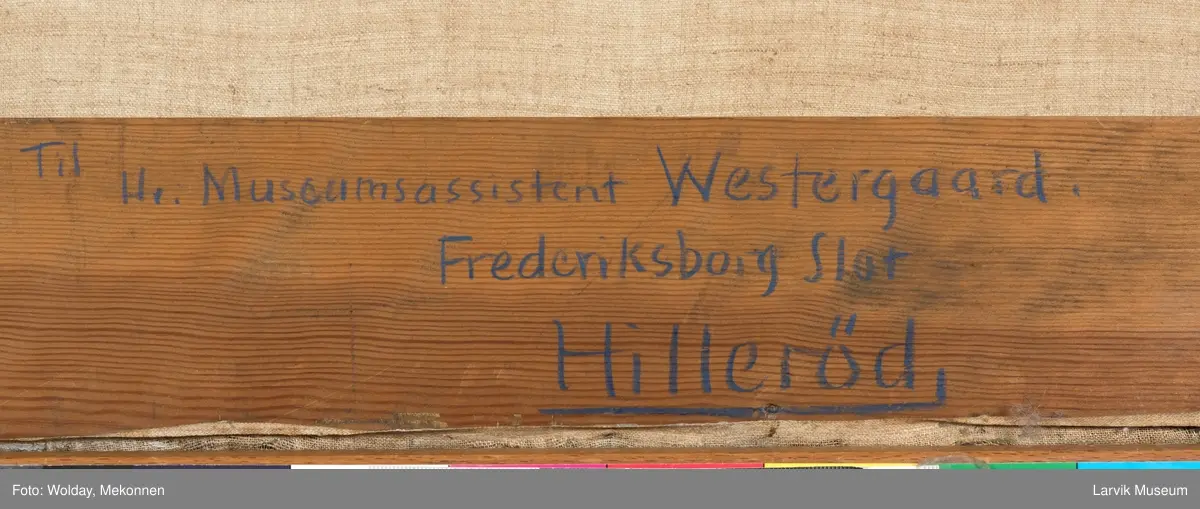 Til
Hr. Museumsassistent Westergaard.
Frederiksborg Slot
Hilleröd,
Foto: Wolday, Mekonnen
Larvik Museum